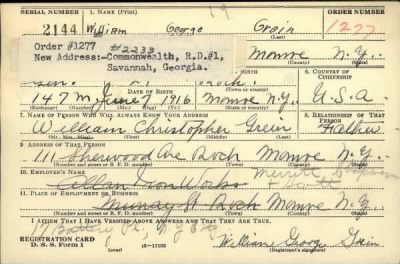 SERIAL NUMBER 1. NAME (Print) ORDER NUMBER
2144 William George Grein 1277
(First) (Middle) (Last)
Order #1277 #2233
New Address:-Commonwealth, R.D.#1,
Savannah, Georgia.
Monroe N.Y.
(County) (State)
6. COUNTRY OF CITIZENSHIP
DATE OF BIRTH
147 M June 1916 Monroe N.Y. U.S.A
(Exchange) (Number) (Mo.) (Day) (Yr.) (Town or county) (State or country)
7. NAME OF PERSON WHO WILL ALWAYS KNOW YOUR ADDRESS 8. RELATIONSHIP OF THAT PERSON
William Christopher Grein Father
(Mr., Mrs., Miss) (First) (Middle) (Last)
9. ADDRESS OF THAT PERSON
111 Sherwood Ave Roch Monroe N.Y.
(Number and street or R. F. D. number) (Town) (County) (State)
10. EMPLOYER'S NAME
Allen Iron Works Merritt Chapman
11. PLACE OF EMPLOYMENT OR BUSINESS + Scott
Murray St Roch Monroe N.Y.
17 Battery Pl, N.Y.
(Number and street or R. F. D. number) (Town) (County) (State)
I AFFIRM THAT I HAVE VERIFIED ABOVE ANSWERS AND THAT THEY ARE TRUE.
REGISTRATION CARD
D. S. S. Form 1 16—17105 William George Grein
(Registrant's signature)